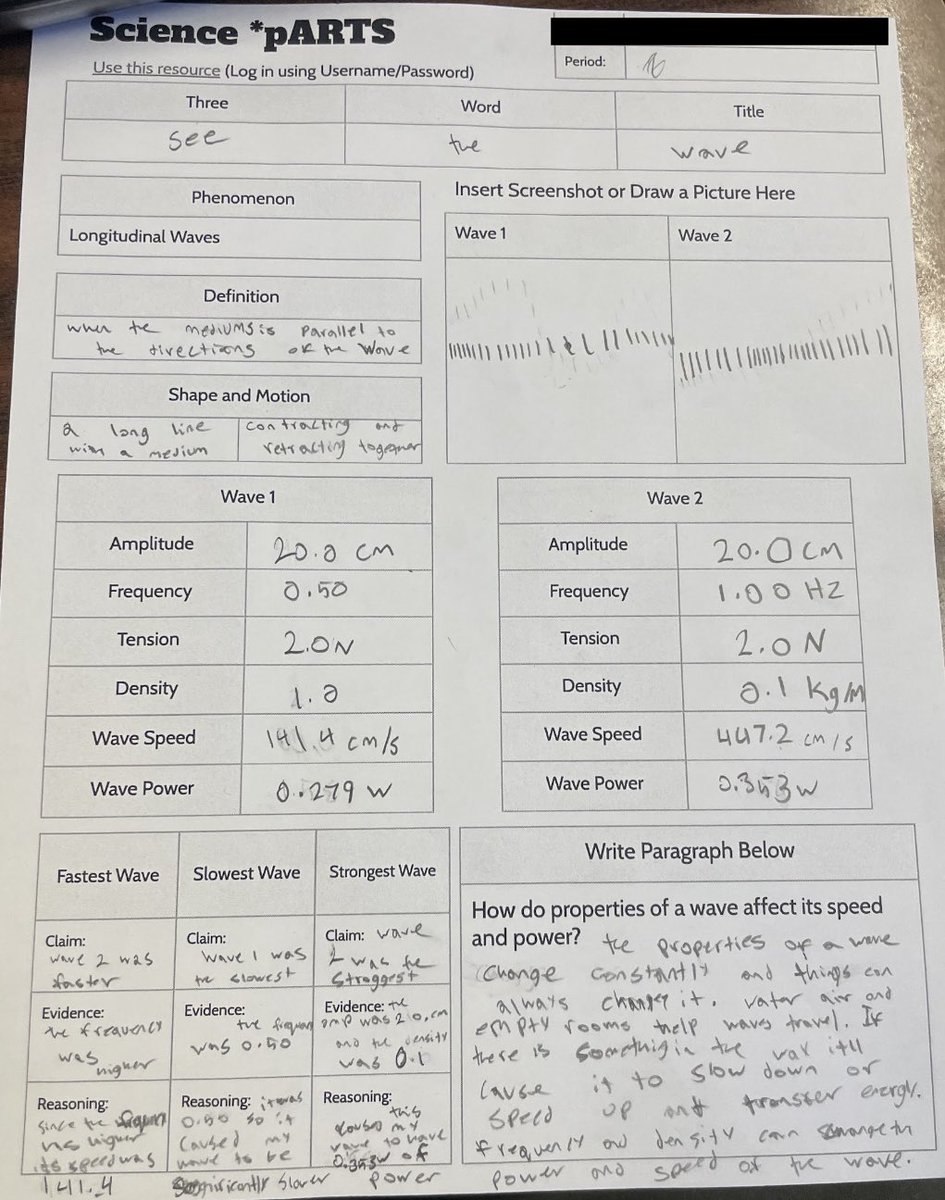 Science *pARTS
Use this resource (Log in using Username/Password)
Period:
Three
Word
Title
see
the
wave
Phenomenon
Longitudinal Waves
Definition
when the mediums is parallel to
the directions of the wave
Shape and Motion
a long line
with a medium
contracting and
retracting together
Insert Screenshot or Draw a Picture Here
Wave 1
Wave 2
Wave 1
Amplitude 20.0 cm
Frequency 0.50
Tension 2.0 N
Density 1.0
Wave Speed 141.4 cm/s
Wave Power 0.279 w
Wave 2
Amplitude 20.0 cm
Frequency 1.00 HZ
Tension 2.0 N
Density 0.1 Kg/M
Wave Speed 447.2 cm/s
Wave Power 0.353w
Fastest Wave
Claim:
wave 2 was
faster
Evidence:
the frequency
was
higher
Reasoning:
since the
was higher
its speed was
141.4
Slowest Wave
Claim:
wave 1 was
the slowest
Evidence:
the
was 0.50
Reasoning: it was
0.50 so it
caused my
wave to be
significantly slower
Strongest Wave
Claim: wave
2 was the
stroggest
Evidence: the
amp was 20.cm
and the density
was 0.1
Reasoning:
this
caused my
wave to have
0.353w of
power
Write Paragraph Below
How do properties of a wave affect its speed
and power? the properties of a wave
change constantly and things can
always change it. vater air and
empty rooms help waves travel. If
there is somethig in the vay itll
cause it to slow down or
speed up and transfer energy.
frequency and density can change th
power and speed of the wave.